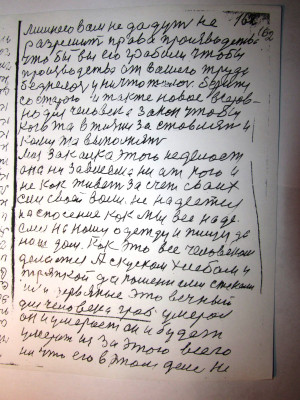 лишнего вам не дадут не 162
разрешит права производства
что бы вы его грабили чтобы
производства от вашего труда
беднелось и ничтожилось берите
со старого и такте новое всеров-
но для человека закон чтобы
кого та в жизни заставлят и
кому та выполнят
Моя закалка этого неделает
она ни зависема ни от кого и
не как живет за счет своих
сил свой воли. не надеется
на спосение как мы все наде
лись на нашу одежду и пищу да
наш дом. Как это все человеком
делается А с куском хлебом и
тряпкой да
это вечный
для человека гроб. умерал
он и умерает он и будет
умерат из за этого всего
ни что его в этом деле не